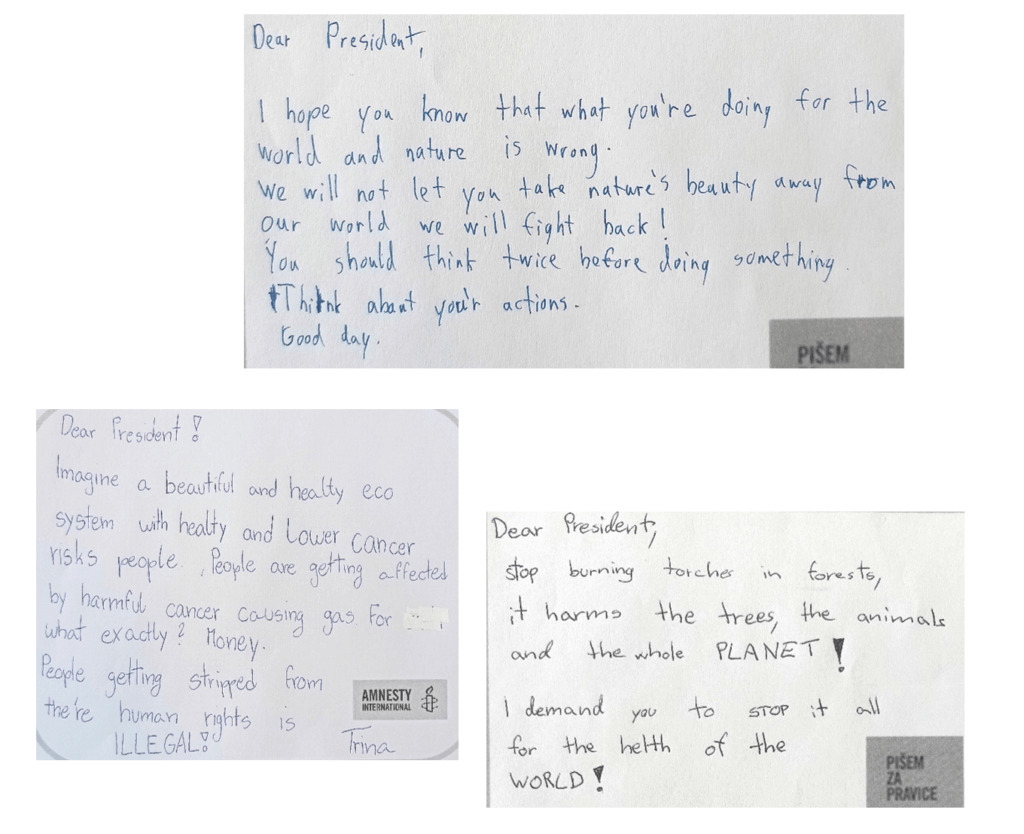 Dear President,
I hope you know that what you're doing for the
world and nature is wrong.
We will not let you take nature's beauty away from
our world we will fight back!
You should think twice before doing something.
Think about you'r actions.
Good day.
PIŠEM
Dear President!
Imagine a beautiful and healty eco
system with healty and Lower cancer
risks people. People are getting affected
by harmful cancer causing gas. For
what exactly? Money.
People getting stripped from
the're human rights is
ILLEGAL!
Trina
AMNESTY
INTERNATIONAL
Dear President,
stop burning torches in forests,
it harms the trees, the animals
and the whole PLANET!
I demand you to STOP it all
for the helth of the
WORLD!
PIŠEM
ZA
PRAVICE